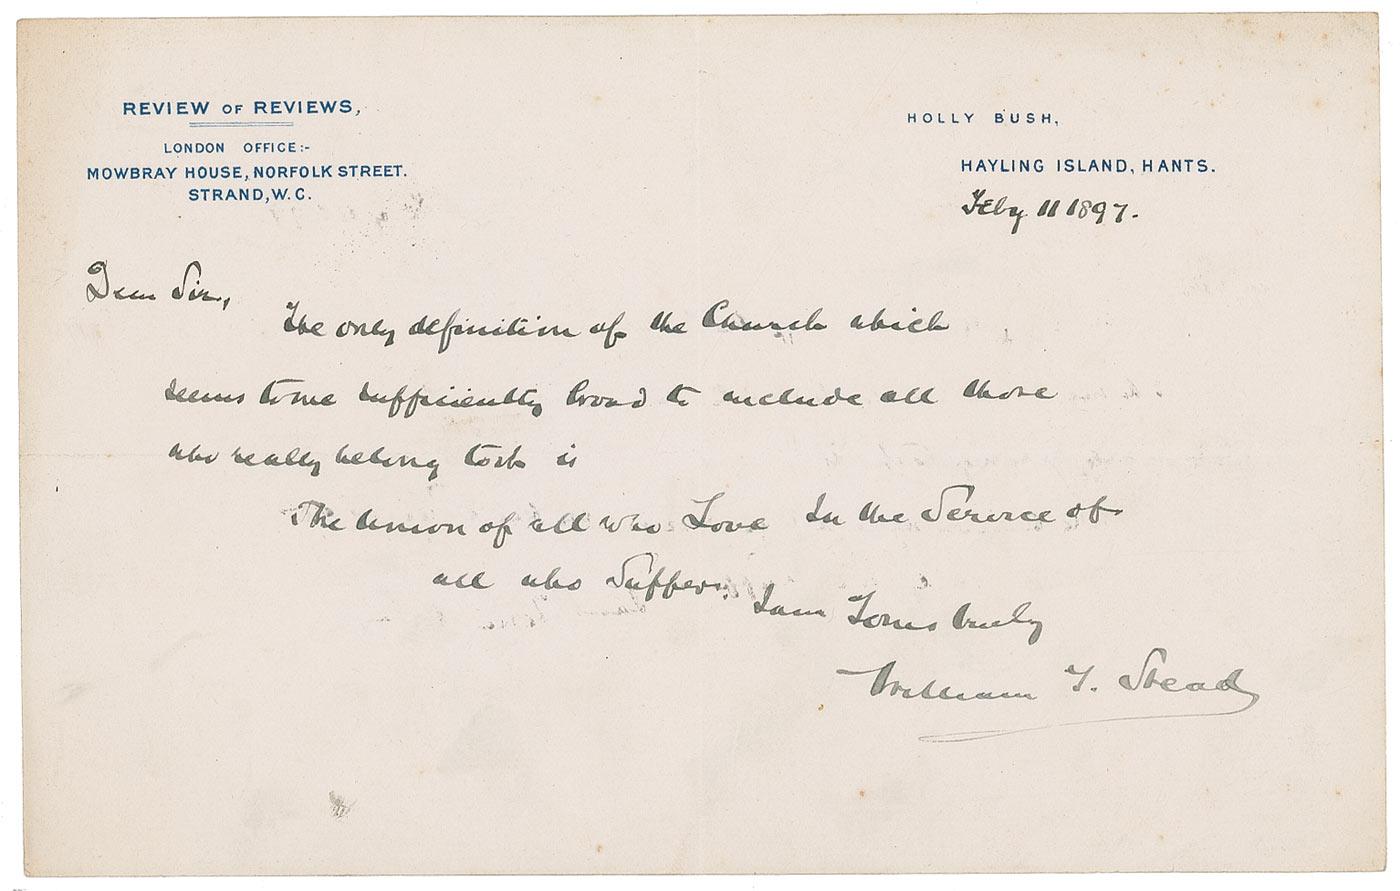 REVIEW OF REVIEWS,
LONDON OFFICE:-
MOWBRAY HOUSE, NORFOLK STREET.
STRAND, W.C.
HOLLY BUSH,
HAYLING ISLAND, HANTS.
Feby 11 1897.
Dear Sir,
The only definition of the Church which
seems to me sufficiently broad to include all those
who really belong to it is
The Union of all who Love In the Service of
all who Suffer.
I am Yours truly
William T. Stead